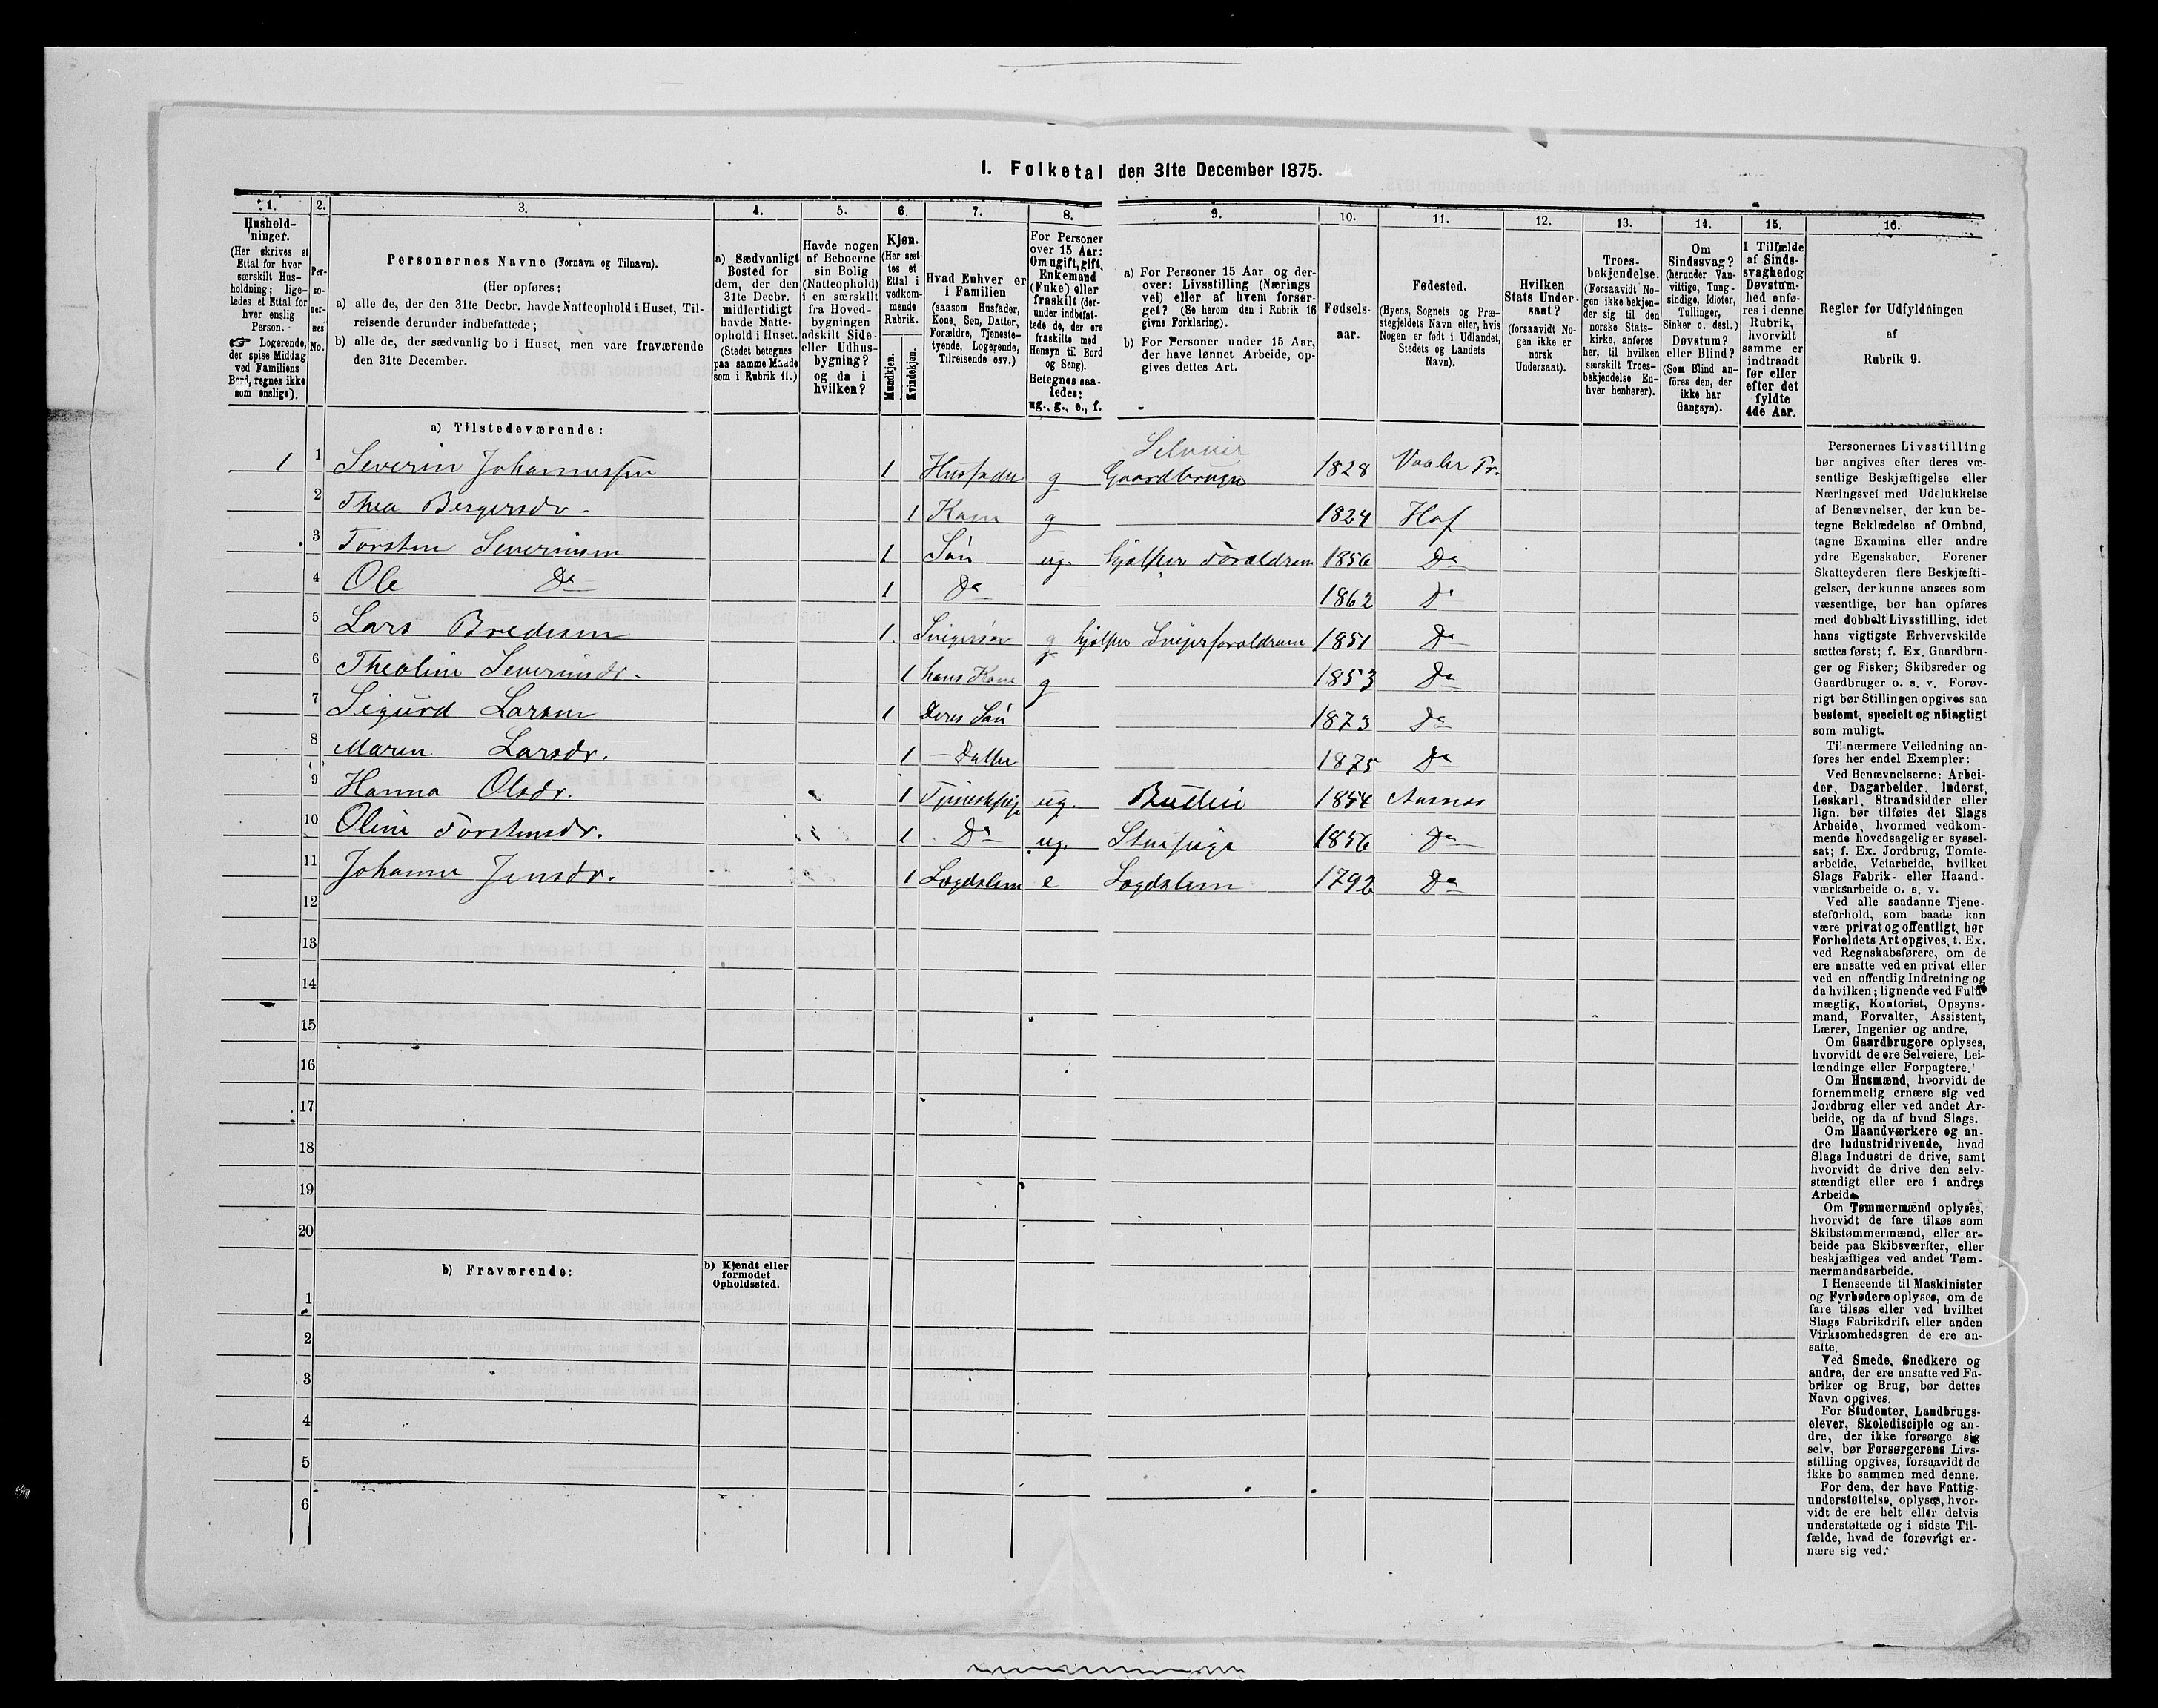 I. Folketal den 31te December 1875.
1. 2. 3. 4. 5. 6. 7. 8. 9. 10. 11. 12. 13. 14. 15. 16.
Husholdninger.
(Her skrives et
Ettal for hver
særskilt Hus-
holdning; lige-
ledes et Ettal for
hver enslig
Person.
☞ Logerende,
der spise Middag
ved Familiens
Bord, regnes ikke
som enslige).
Per-
so-
ner-
nes
No.
Personernes Navne (Fornavn og Tilnavn).
(Her opføres:
a) alle de, der den 31te Decbr. havde Natteophold i Huset, Til-
reisende derunder indbefattede;
b) alle de, der sædvanlig bo i Huset, men vare fraværende
den 31te December.
a) Sædvanligt
Bosted for
dem, der den
31te Decbr.
midlertidigt
havde Natte-
ophold i Huset.
(Stedet betegnes
paa samme Maade
som i Rubrik 11.)
Havde nogen
af Beboerne
sin Bolig
(Natteophold)
i en særskilt
fra Hoved-
bygningen
adskilt Side-
eller Udhus-
bygning?
og da i
hvilken?
Kjøn.
(Her sæt-
tes et
Ettal i
vedkom-
mende
Rubrik.
Mandkjøn.
Kvindekjøn.
Hvad Enhver er
i Familien
(saasom Husfader,
Kone, Søn, Datter,
Forældre, Tjeneste-
tyende, Logerende,
Tilreisende osv.)
For Personer
over 15 Aar:
Om ugift, gift,
Enkemand
(Enke) eller
fraskilt (der-
under indbefat-
tede de, der ere
fraskilte med
Hensyn til Bord
og Seng).
Betegnes saa-
ledes:
ug., g., e., f.
a) For Personer 15 Aar og der-
over: Livsstilling (Nærings
vei) eller af hvem forsør-
get? (Se herom den i Rubrik 16
givne Forklaring).
b) For Personer under 15 Aar,
der have lønnet Arbeide, op-
gives dettes Art.
Fødsels-
aar.
Fødested.
(Byens, Sognets og Præ-
stegjeldets Navn eller, hvis
Nogen er født i Udlandet,
Stedets og Landets
Navn).
Hvilken
Stats Under-
saat?
(forsaavidt No-
gen ikke er
norsk
Undersaat).
Troes-
bekjendelse.
(Forsaavidt No-
gen ikke bekjen-
der sig til den
norske Stats-
kirke, anføres
her, til hvilken
særskilt Troes-
bekjendelse En-
hver henhører).
Om
Sindssvag?
(herunder Van-
vittige, Tung-
sindige, Idioter,
Tullinger,
Sinker o. desl.)
Døvstum?
eller Blind?
(Som Blind an-
føres den, der
ikke har
Gangsyn).
I Tilfælde
af Sinds-
svaghed og
Døvstum-
hed anfø-
res i denne
Rubrik,
hvorvidt
samme er
indtraadt
før eller
efter det
fyldte
4de Aar.
Regler for Udfyldningen
af
Rubrik 9.
a) Tilstedeværende:
Selveier
1 1 Severin Johannessen 1 Husfader g Gaardbruger 1828 Vaaler Pr.
2 Thea Bergersdr. 1 Kone g 1824 Hof
3 Torsten Severinsen 1 Søn ug. hjælper Forældrene 1856 Do
4 Ole Do 1 Do 1862 Do
5 Lars Bredesen 1 Svigersøn g hjælper Svigerforældrene 1851 Do
6 Theoline Severinsdr. 1 hans Kone g 1853 Do
7 Sigurd Larsen 1 Deres Søn 1873 Do
8 Maren Larsdr. 1 — Datter 1875 Do
9 Hanna Olsdr. 1 Tjenestepige ug. Budeie 1854 Aasnes
10 Oline Torstensdr. 1 Do ug. Stuepige 1856 Do
11 Johanne Jensdr. 1 Lægdslem e Lægdslem 1792 Do
12
13
14
15
16
17
18
19
20
b) Fraværende:
b) Kjendt eller
formodet
Opholdssted.
1
2
3
4
5
6
Personernes Livsstilling
bør angives efter deres væ-
sentlige Beskjæftigelse eller
Næringsvei med Udelukkelse
af Benævnelser, der kun be-
tegne Beklædelse af Ombud,
tagne Examina eller andre
ydre Egenskaber. Forener
Skatteyderen flere Beskjæfti-
gelser, der kunne ansees som
væsentlige, bør han opføres
med dobbelt Livsstilling, idet
hans vigtigste Erhvervskilde
sættes først; f. Ex. Gaardbru-
ger og Fisker; Skibsreder og
Gaardbruger o. s. v. Forøv-
rigt bør Stillingen opgives saa
bestemt, specielt og nöiagtigt
som muligt.
Til nærmere Veiledning an-
føres her endel Exempler:
Ved Benævnelserne: Arbei-
der, Dagarbeider, Inderst,
Løskarl, Strandsidder eller
lign. bør tilføies det Slags
Arbeide, hvormed vedkom-
mende hovedsagelig er syssel-
sat; f. Ex. Jordbrug, Tomte-
arbeide, Veiarbeide, hvilket
Slags Fabrik- eller Haand-
værksarbeide o. s. v.
Ved alle saadanne Tjene-
steforhold, som baade kan
være privat og offentligt, bør
Forholdets Art opgives, t. Ex.
ved Regnskabsførere, om de
ere ansatte ved en privat eller
ved en offentlig Indretning og
da hvilken; lignende ved Fuld-
mægtig, Kontorist, Opsyns-
mand, Forvalter, Assistent,
Lærer, Ingeniør og andre.
Om Gaardbrugere oplyses,
hvorvidt de ere Selveiere, Lei-
lændinge eller Forpagtere.
Om Husmænd, hvorvidt de
fornemmelig ernære sig ved
Jordbrug eller ved andet Ar-
beide, og da af hvad Slags.
Om Haandværkere og an-
dre Industridrivende, hvad
Slags Industri de drive, samt
hvorvidt de drive den selv-
stændigt eller ere i andres
Arbeide.
Om Tømmermænd oplyses,
hvorvidt de fare tilsøs som
Skibstømmermænd, eller ar-
beide paa Skibsværfter, eller
beskjæftiges ved andet Tøm-
mermandsarbeide.
I Henseende til Maskinister
og Fyrbødere oplyses, om de
fare tilsøs eller ved hvilket
Slags Fabrikdrift eller anden
Virksomhedsgren de ere an-
satte.
Ved Smede, Snedkere og
andre, der ere ansatte ved Fa-
briker og Brug, bør dettes
Navn opgives.
For Studenter, Landbrugs-
elever, Skoledisciple og an-
dre, der ikke forsørge sig
selv, bør Forsørgerens Livs-
stilling opgives, forsaavidt de
ikke bo sammen med denne.
For dem, der have Fattig-
understøttelse, oplyses, hvor-
vidt de ere helt eller delvis
understøttede og i sidste Til-
fælde, hvad de forøvrigt er-
nære sig ved.